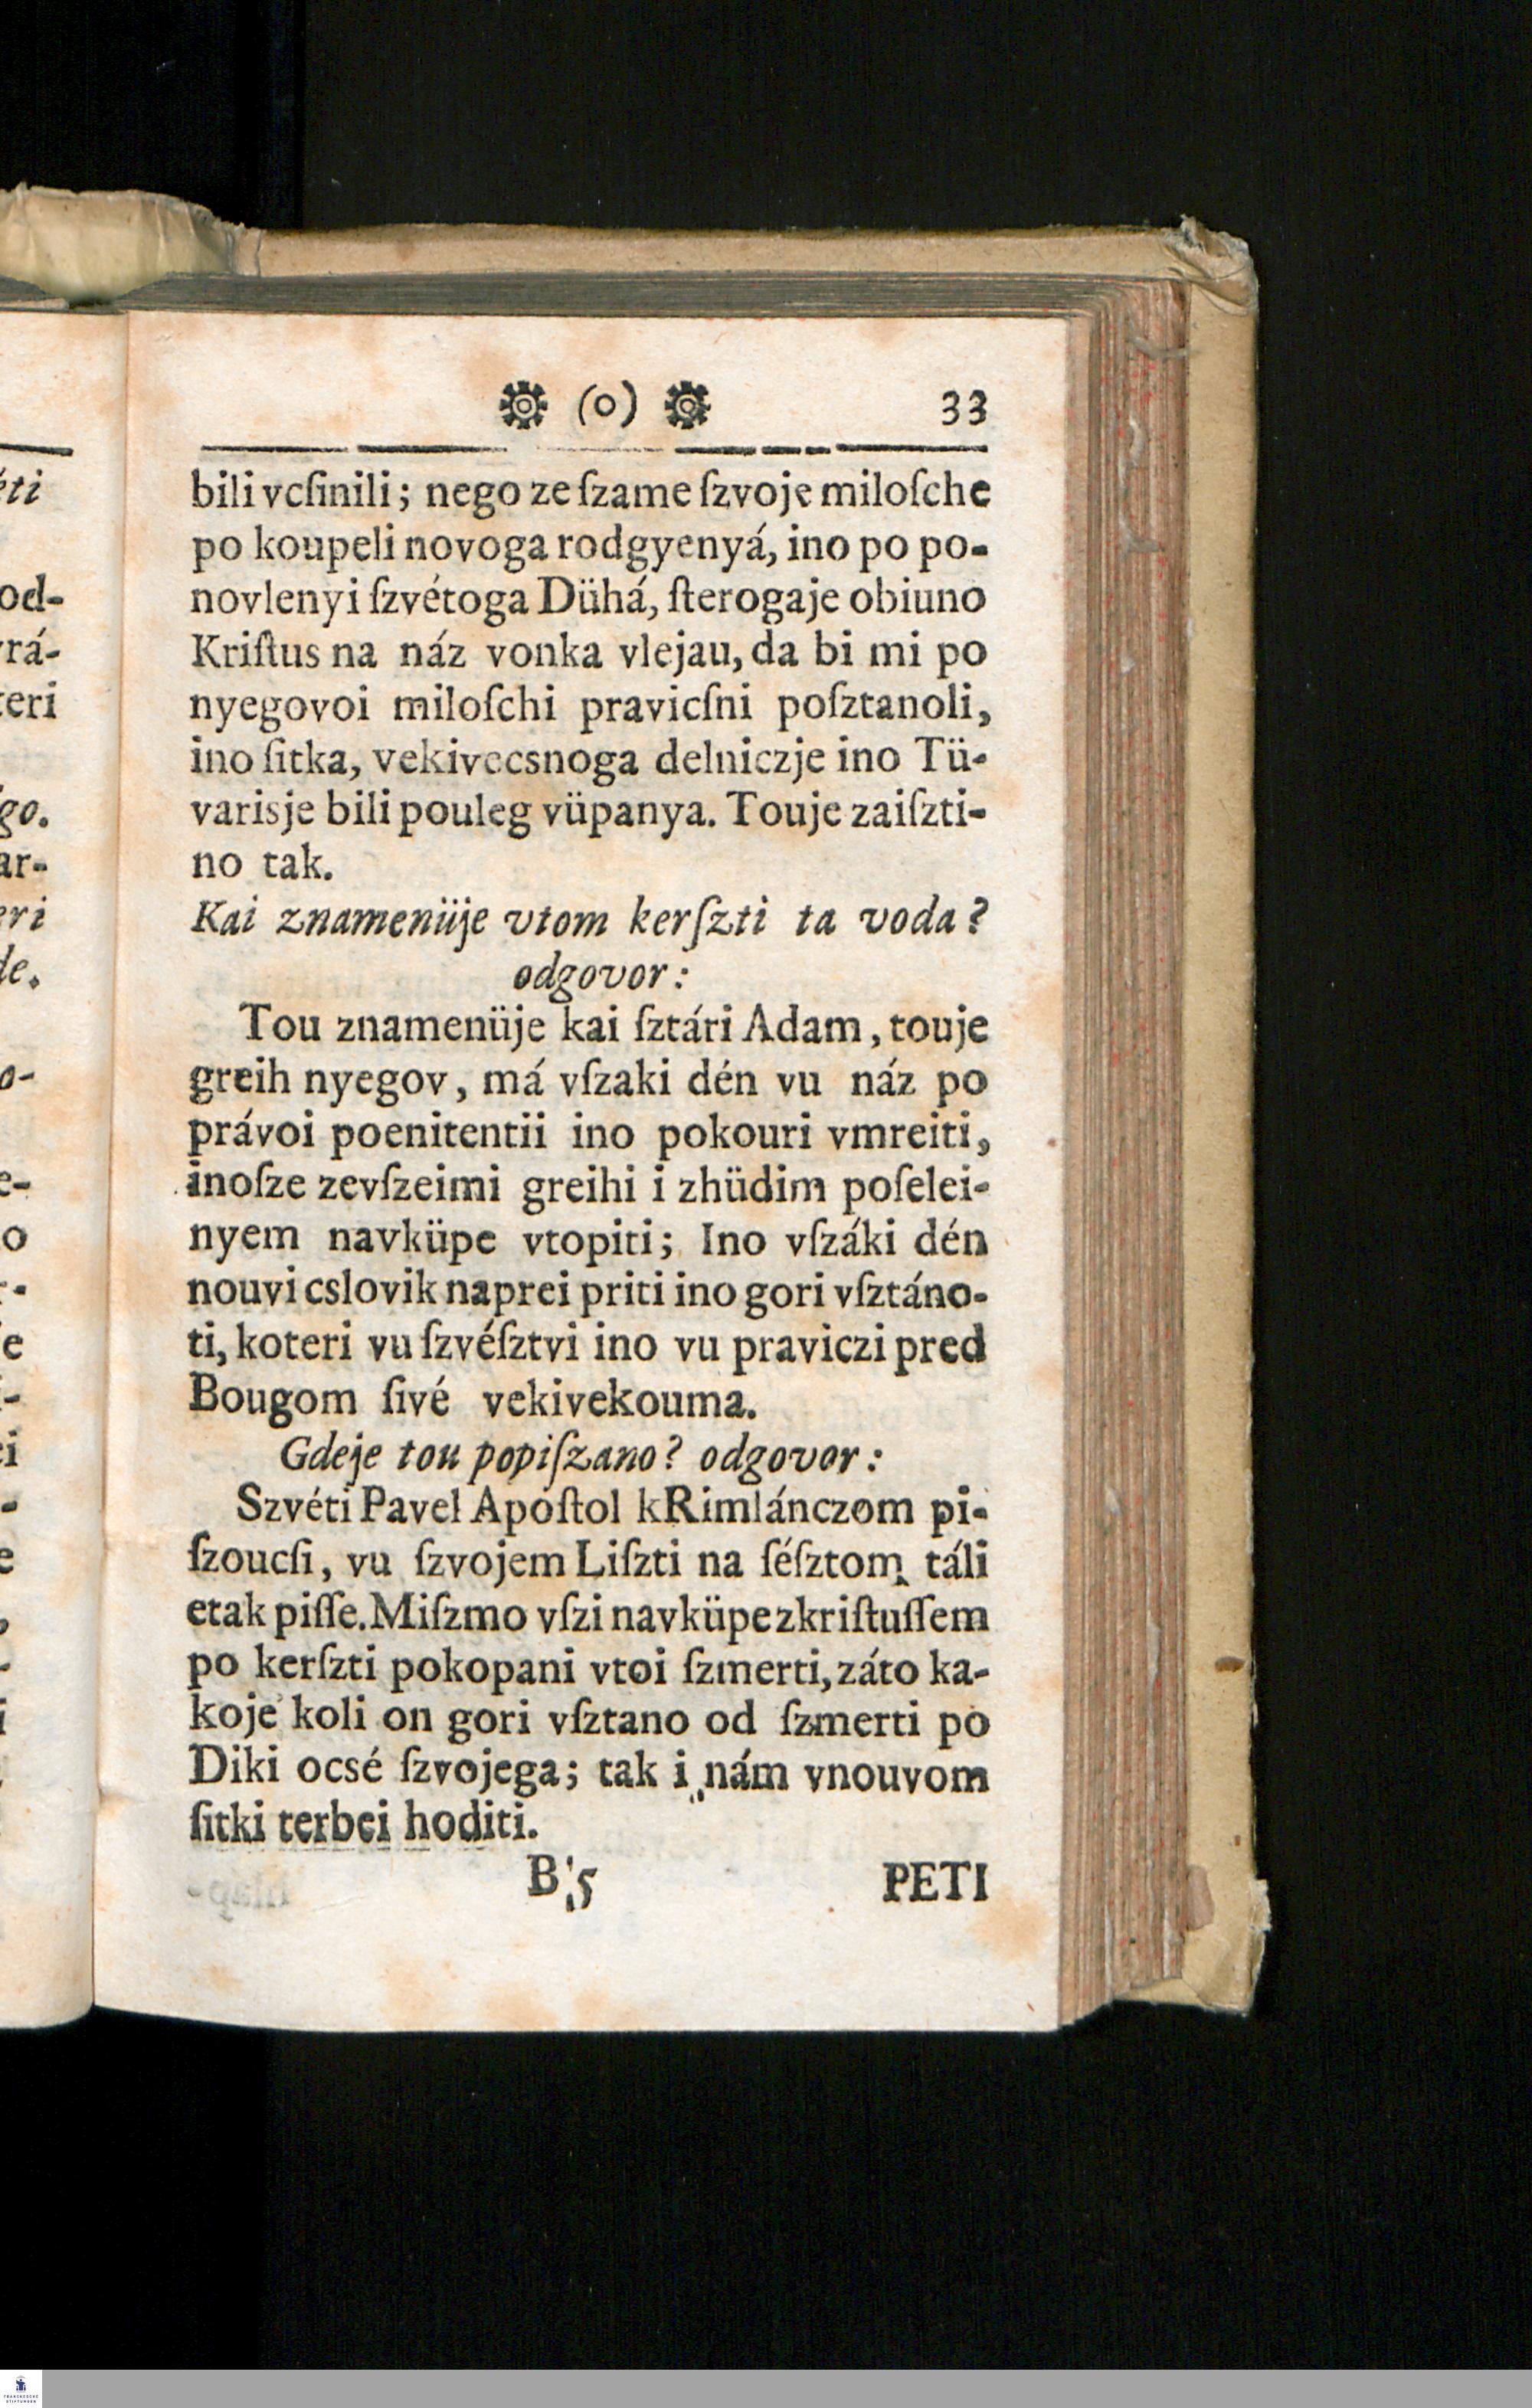 (o) 33
bili vcſinili; nego ze ſzame ſzvoje miloſche
po koupeli novoga rodgyenyá, ino po po-
novlenyi ſzvétoga Dühá, ſterogaje obiuno
Kriſtus na náz vonka vlejau, da bi mi po
nyegovoi miloſchi pravicſni poſztanoli,
ino ſitka, vekivecsnoga delniczje ino Tü-
varisje bili pouleg vüpanya. Touje zaiſzti-
no tak.
Kai znamenüje vtom kerſzti ta voda?
odgovor:
Tou znamenüje kai ſztári Adam, touje
greih nyegov, má vſzaki dén vu náz po
právoi poenitentii ino pokouri vmreiti,
inoſze zevſzeimi greihi i zhüdim poſelei-
nyem navküpe vtopiti; Ino vſzáki dén
nouvi cslovik naprei priti ino gori vſztáno-
ti, koteri vu ſzvéſztvi ino vu praviczi pred
Bougom ſivé vekivekouma.
Gdeje tou popiſzano? odgovor:
Szvéti Pavel Apoſtol kRimlánczom pi-
ſzoucſi, vu ſzvojem Liſzti na ſéſztom táli
etak piſſe. Miſzmo vſzi navküpe zkriſtuſſem
po kerſzti pokopani vtoi ſzmerti, záto ka-
koje koli on gori vſztano od ſzmerti po
Diki ocsé ſzvojega; tak i nám vnouvom
ſitki terbei hoditi.
B 5 PETI